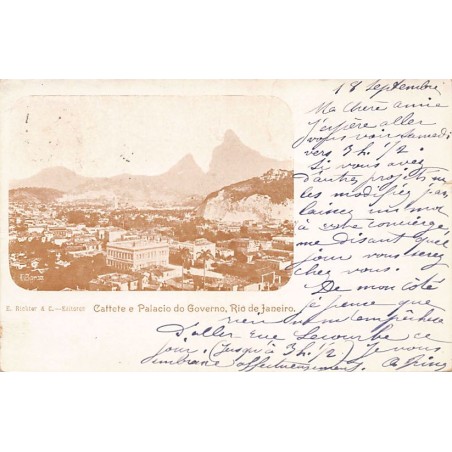 18 Septembre
Ma chère amie
J'espère aller
vous voir samedi
vers 3 h. 1/2.
Si vous avez
d'autres projets ne
les modifiez pas,
laissez un mot
à votre concierge
me disant quel
jour vous serez
chez vous.
De mon côté
je pense que
rien ne m'empêchera
D'aller rue Lecourbe ce
jour. (Jusqu'à 3 h. 1/2) Je vous
embrasse affectueusement.
E. Richter & C. - Editores Cattete e Palacio do Governo, Rio de Janeiro.